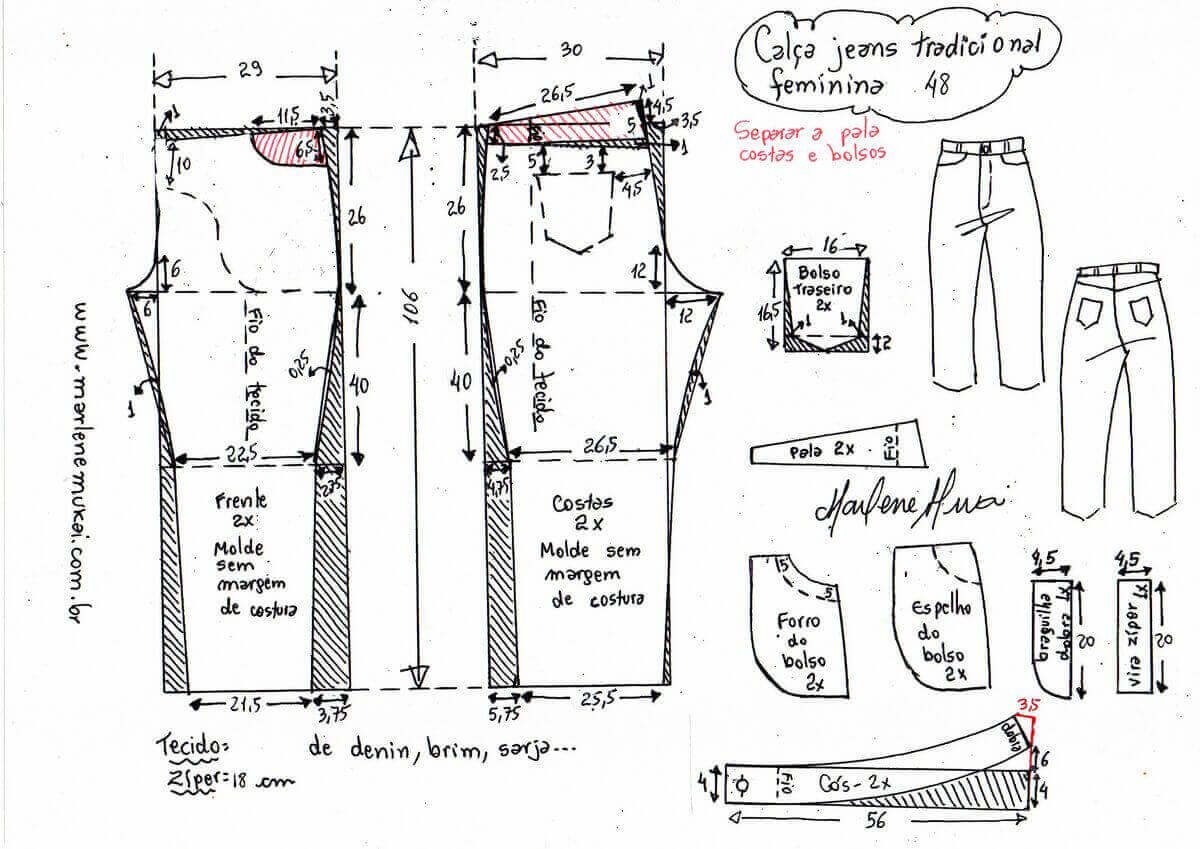 Calça jeans tradicional
feminina 48
Separar a pala
costas e bolsos
29
1
11,5
3,5
6,5
10
26
6
6
40
0,25
1
Fio do tecido
22,5
2,75
Frente
2x
Molde
sem
margem
de costura
21,5
3,75
106
30
26,5
1
4,5
3,5
5
1
2,5
5
3
4,5
26
12
12
40
0,25
1
Fio do tecido
26,5
4,75
Costas
2x
Molde sem
margem
de costura
5,75
25,5
16
Bolso
traseiro
2x
16,5
1
1
2
Pala 2x
Fio
Marlene Mukai
5
5
Forro
do
bolso
2x
Espelho
do
bolso
2x
4,5
braguilha
dobra 1x
20
4,5
vira zíper 1x
20
3,5
dobra
6
4
4
Fio
Cós-2x
56
Tecido: de denin, brim, sarja...
Zíper=18 cm
www.marlenemukai.com.br